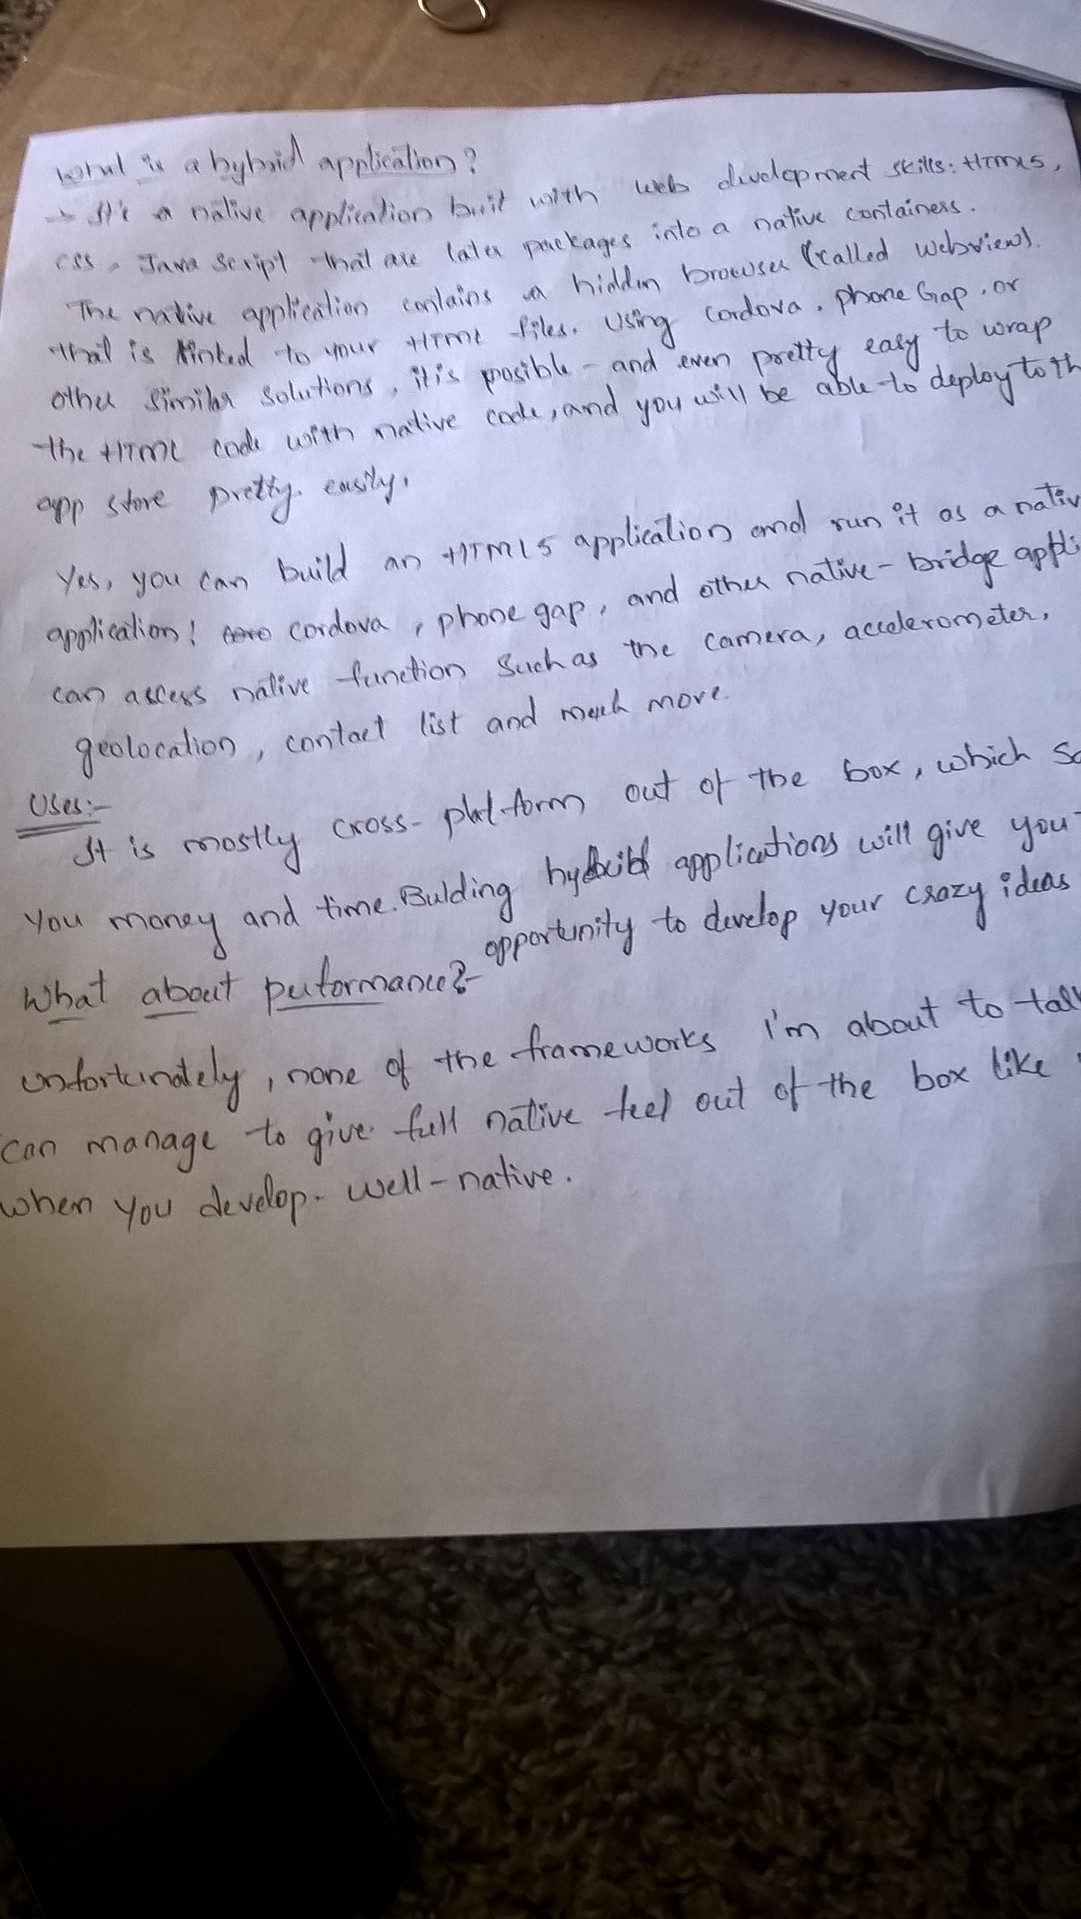 What is a hybrid application?
→ It's a native application buit with web divelopment skills: HTML5,
css, Java Script that are later packages into a native containers.
The native application contains a hidden browser (called webview).
that is linked to your HTML files. Using cordova, phone Gap, or
other Similar solutions, it is posible - and even pretty easy to wrap
the HTML code with native code, and you will be able to deploy to th
app store pretty easily.
Yes, you can build an HTML5 application and run it as a nativ
application! cordova, phone gap, and other native-bridge appli
can access native function such as the camera, accelerometer,
geolocation, contact list and much more.
Uses:-
It is mostly cross-platform out of the box, which sa
you money and time. Bulding applications will give you
opportunity to develop your crazy ideas
What about performance?-
unfortunately, none of the frameworks I'm about to talk
can manage to give full native feel out of the box like
when you develop- well-native.